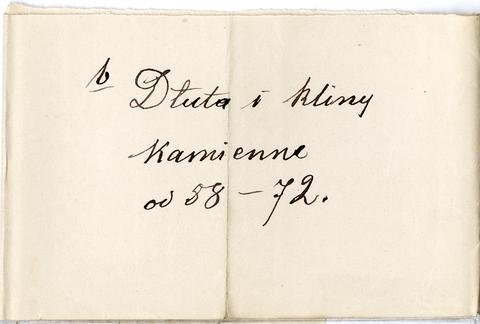 b Dłuta i kliny
kamienne
od 58 – 72.